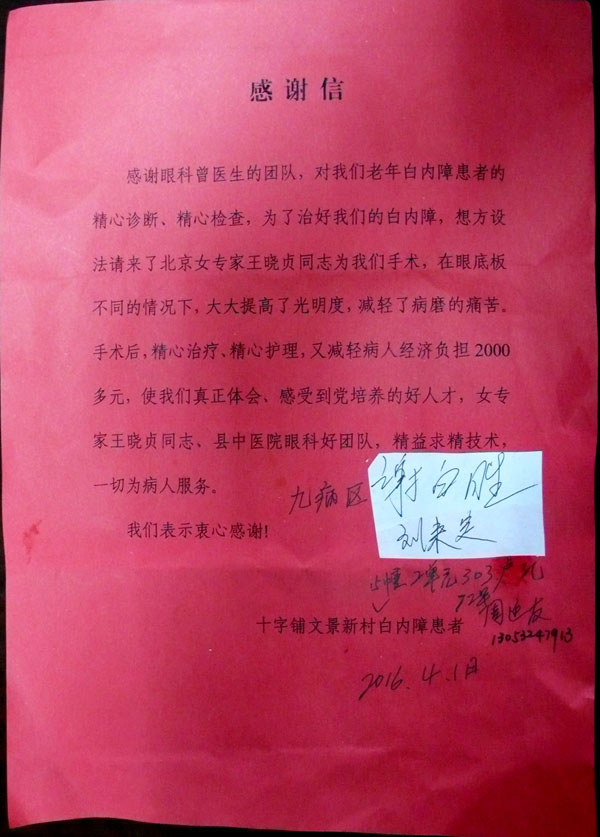 感谢信
感谢眼科曾医生的团队，对我们老年白内障患者的
精心诊断、精心检查，为了治好我们的白内障，想方设
法请来了北京女专家王晓贞同志为我们手术，在眼底板
不同的情况下，大大提高了光明度，减轻了病磨的痛苦。
手术后，精心治疗、精心护理，又减轻病人经济负担2000
多元，使我们真正体会、感受到党培养的好人才，女专
家王晓贞同志、县中医院眼科好团队，精益求精技术，
一切为病人服务。
九病区 谢白胜
我们表示衷心感谢！
2单元303户
十字铺文景新村白内障患者
13053247913
2016.4.1日